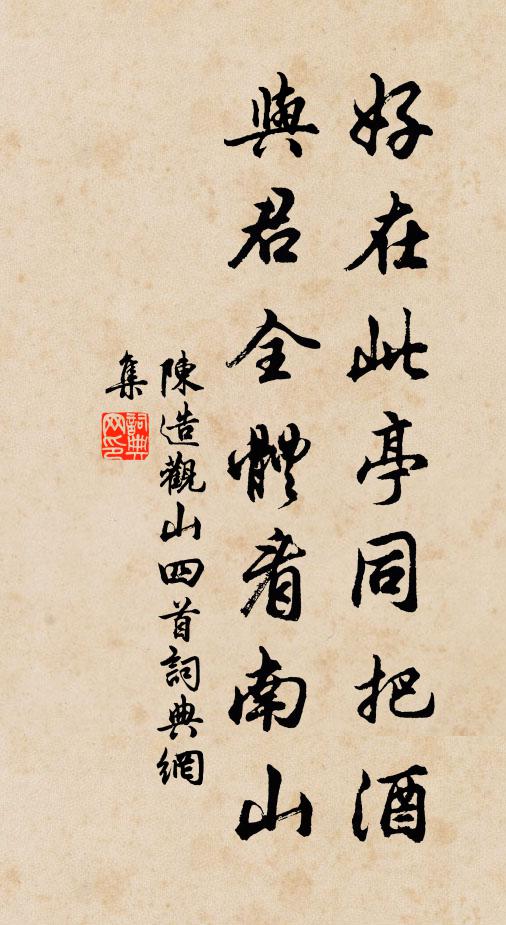 好在此亭同把酒
與君全體看南山
陳造觀山四首詞典網
集
詞典
网印